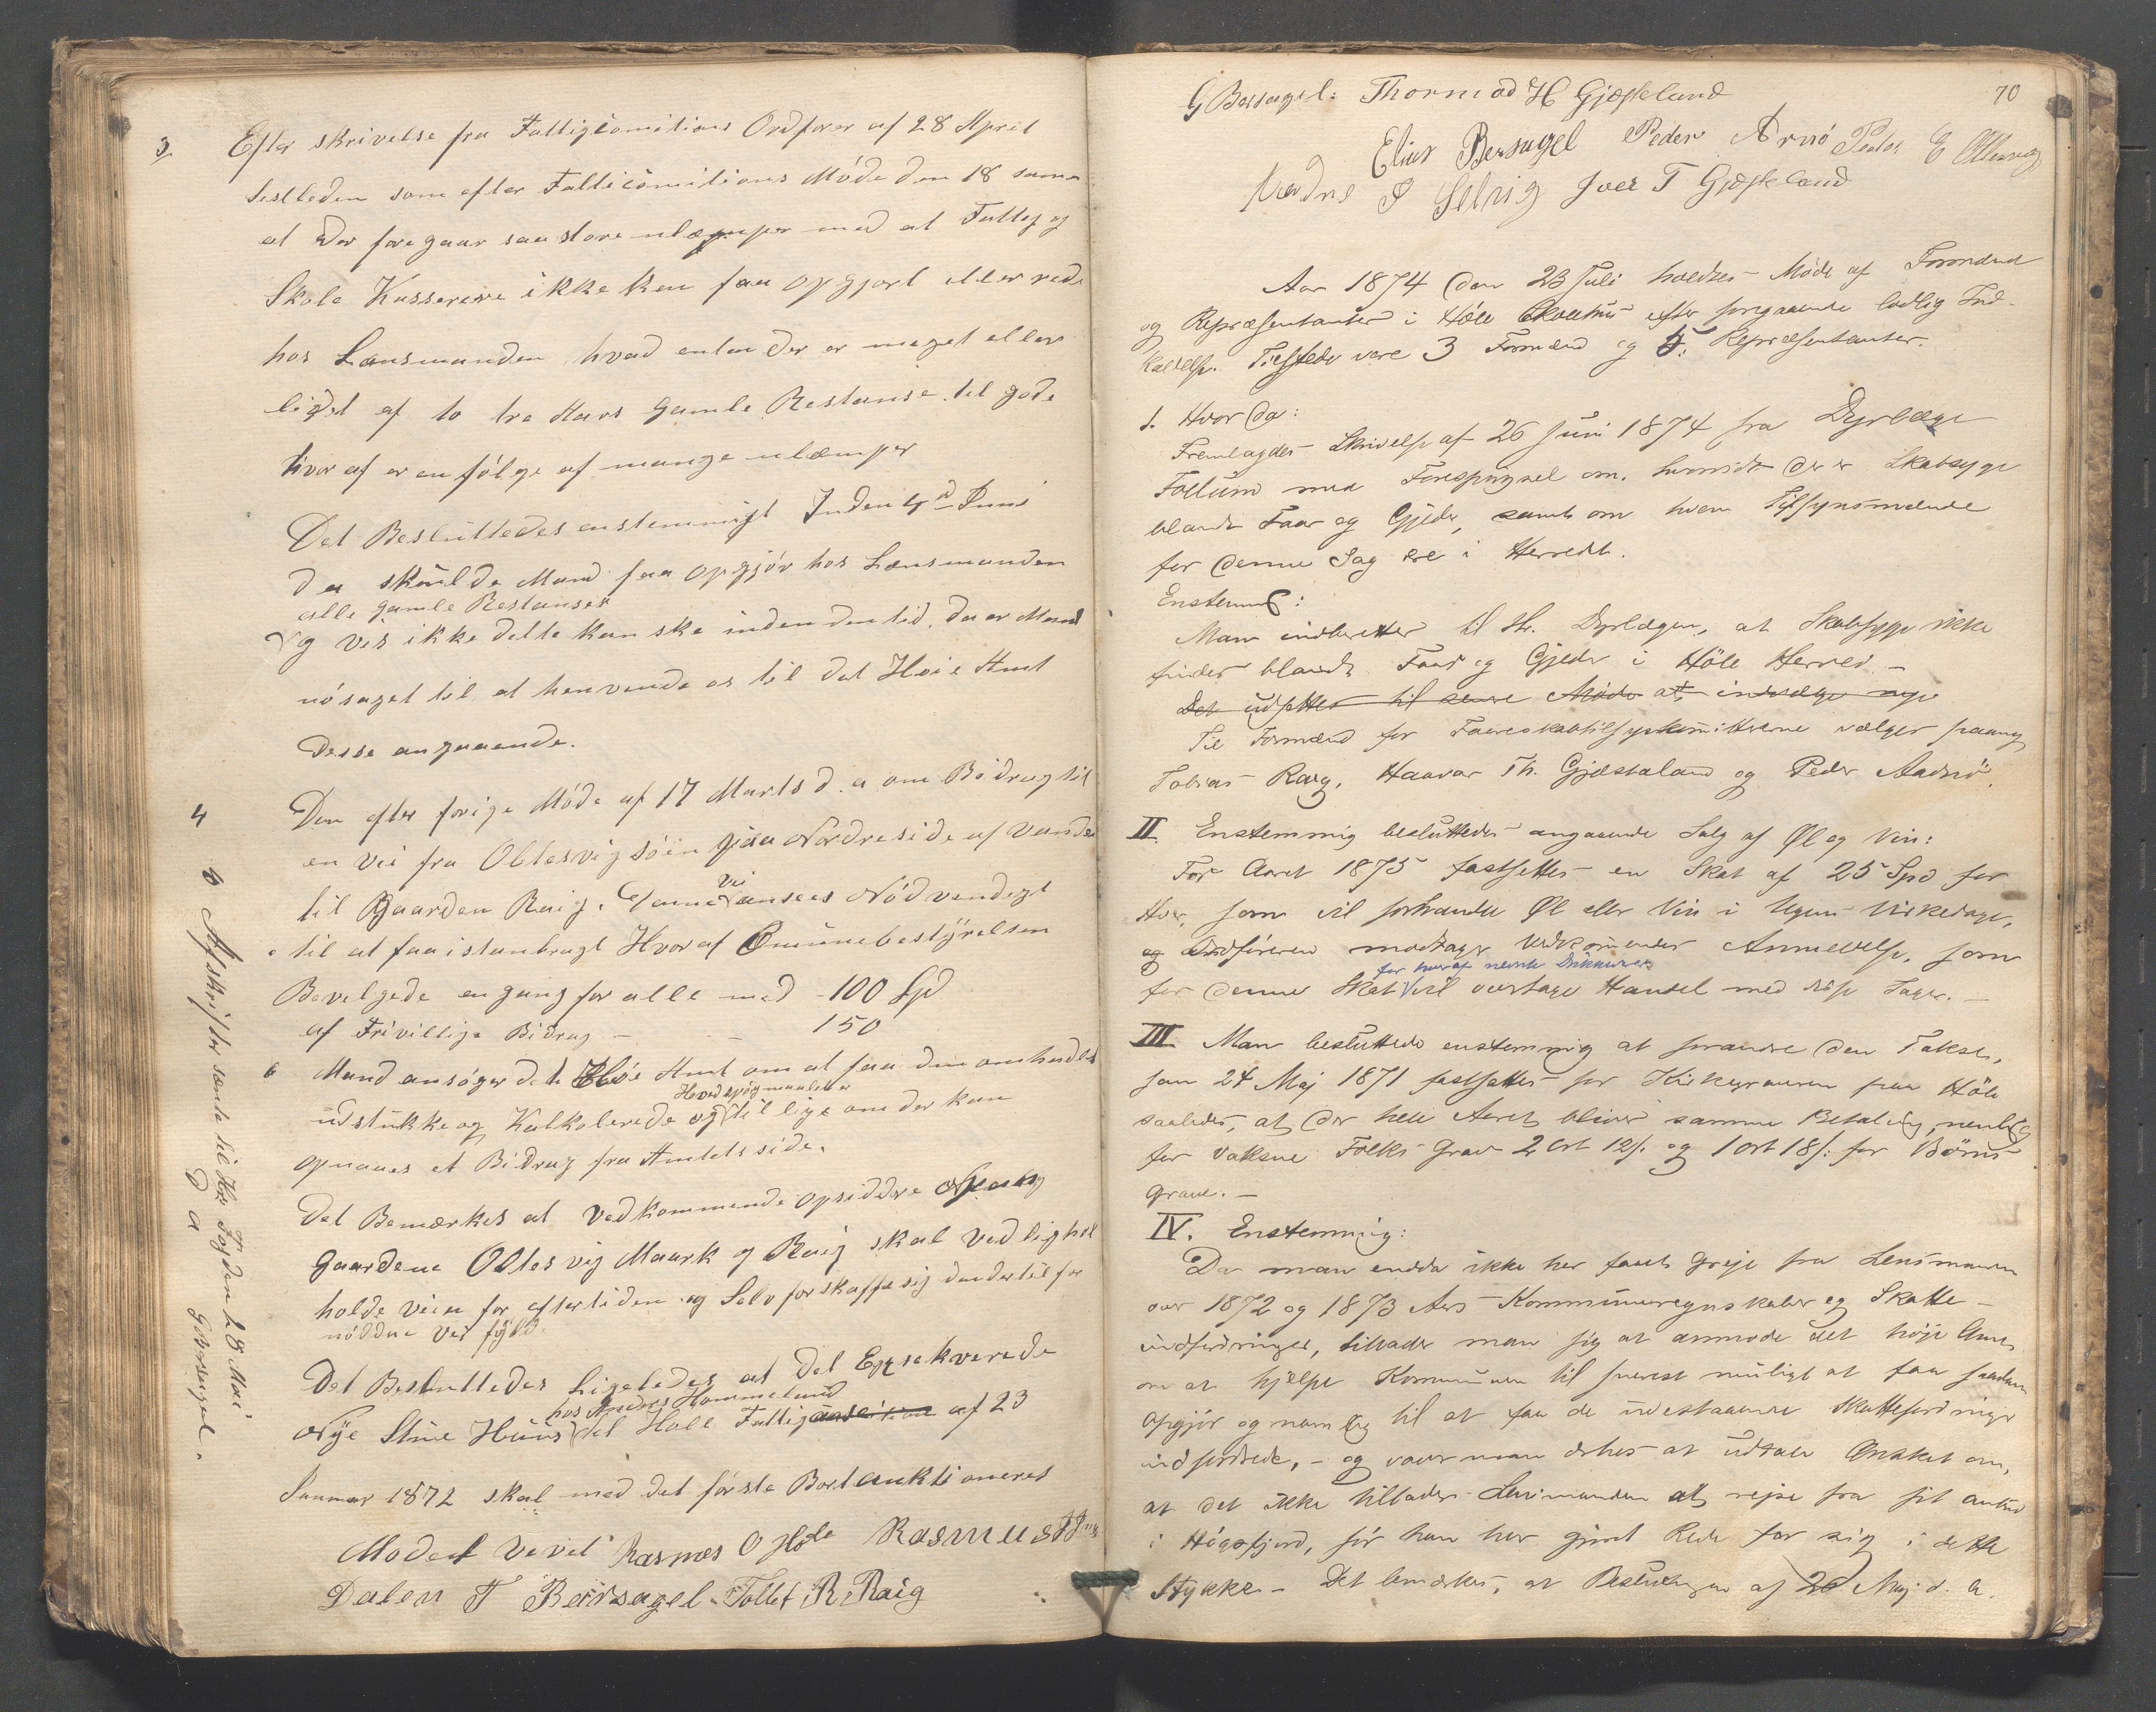 3 Efter skrivelse fra Fattigcomitions Ordforer af 28 April
sestleden som efter Fatticomitions Møde den 18 samme
at der foregaar saa store ulæmper med at Fattig og
Skole Kasserere ikke kan faa opgjort eller rede
hos Lænsmanden hvad enten der er meget eller
lidet af to tre Aars gamle Restanse til gode
hvor af er en følge af mange ulæmper
Det Besluttedes enstemmigt Inden 4de Juni
d a skulde Mand faa opgjör hos Lænsmanden
alle gamle Restanser
og vis ikke dette kan ske inden den tid, da er Mand
nósaget til at henvende os til det Høie Amt
desse angaaende.
4 Den efter forige Møde af 17 Marts d. a om Bidrag til
en Vei fra Oltesvigsöen paa Nordreside af Vandet
til Gaarden Raig. Denne Vei ansees Nödvendigt
til at faa istanbragt Hvoraf Comunebestyrelsen
Bevelgede en gang for alle med - 100 Spd
af Frivillige Bidrag - - 150
6 Mand ansöger det Høie Amt om at faa den omhandlet
udstukke og Kalkolerede og Hovedspögmaalet er tillige om der kan
opnaaes et Bidrag fra Amtets side.
Det Bemærkes at Vedkommende opsiddere
gaardene Oltesvig Maark og Raig skal Vedlighol
holde veien for eftertiden og Selv forskaffe sig den dertil for
nóddne Vei fyld
Det Besluttedes Ligeledes at det Exsekverede
Nÿe Stue Huus hos Anders Hommeland det Høle Fattig af 23
Januar 1872 skal med det första Bortauktioneres
Modest Vevel Rasmus O Høle Rasmus
Dalen T Bersagel Tollef R. Raig
3 Afskrifter sænte til Hr Fogden 28 Mai
d a
G Bersagel.
70
G Bersagel: Thormod H Gjæsteland
Elias Bersagel Peder Arnö Peder E Oltesvig
Nædne S Selvig Joel T Gjesteland
Aar 1874 den 23 Juli holdtes Møde af Formænd
og Repræsentanter i Høle Skolehus efter foregaaende lovlig Ind-
kaldelse. Tilstede vare 3 Formænd og 5 Repræsentanter.
1. Hvor da:
Fremlagdes Skrivelse af 26 Juni 1874 fra Dyrlæge
Follum med Forespørgsel om, hvorvidt der er Skabsyge
blandt Faar og Gjeder, samt om hvem Tilsynsmænde
for denne Sag ere i Herredet.
Enstemmig:
Man indberetter til Hr. Dyrlægen, at Skabsyge ikke
findes blandt Faar og Gjeder i Höle Herred. -
Det udsættes til senere Møde at indvælge nye
Til Formænd for Faareskabtilsynskomitterne vælges paany
Tobias Raig, Haavar Th. Gjæstaland og Peder Aadnö.
II. Enstemmig besluttedes angaaende Salg af Øl og Vin:
For Aaret 1875 fastsættes en Skat af 25 Spd for
Hver, som vil forhandle Øl eller Vin i Ugens Virkedage,
og Ordføreren modtager vedkommendes Anmeldelse, som
for denne Skat for hver af nævnte Drikkevarer vil overtage Handel med disse Sager. -
III. Man besluttede enstemmig at forandre den Takst,
som 24 Maj 1871 fastsattes for Kirkegraveren paa Höle
saaledes, at der hele Aaret bliver samme Betaling, nemlig
for voksne Folks Grav 2 Ort 12 s. og 1 Ort 18 s. for Börns
grave. -
IV. Enstemmig:
Da man endda ikke har faaet Greje fra Lensmanden
over 1872 og 1873 Aars Kommuneregnskaber og Skatte-
indfordringer, tillader man sig at anmode det høje Amt
om at hjælpe Kommunen til snarest muligt at faa saadant
Opgjör og navnlig til at faa de udestaaende Skattefordringer
indfordrede, - og vover man derhos at udtale Ønsket om,
at det ikke tillades Lensmanden at rejse fra sit
i Högsfjord, för han har gjort Rede for sig i dette
Stykke. - Det bemærkes, at Beslutningen af 20 Maj d. A.